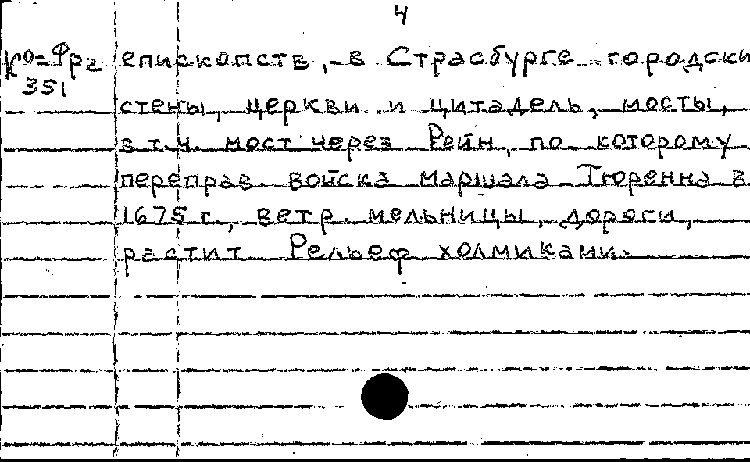 4
Ко-Фр2 епископств, в Страсбурге городски
351
стены, церкви и цитадель, мосты,
в т.ч. мост через Рейн, по которому
переправ. войска маршала Тюренна в
1675 г., ветр. мельницы, дороги,
растит. Рельеф холмиками.